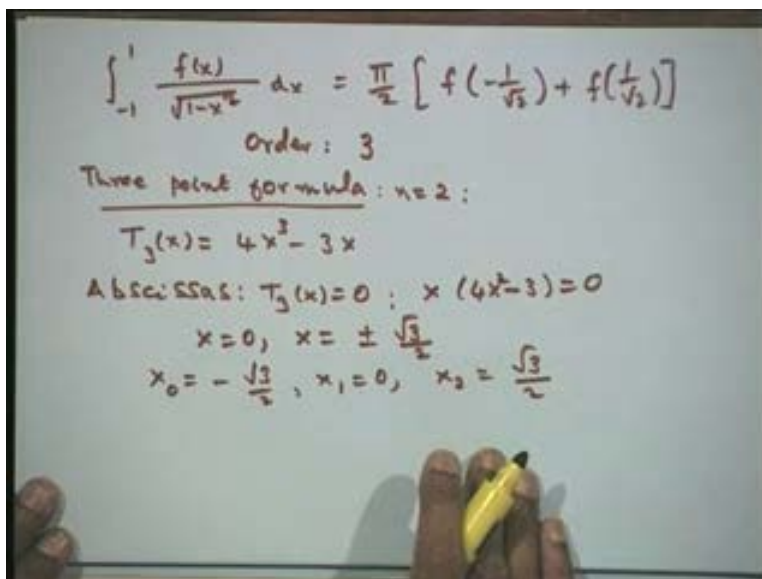 ∫₋₁¹ f(x)/√(1-x²) dx = π/2 [ f(-1/√2) + f(1/√2) ]
Order: 3
Three point formula: n=2:
T₃(x) = 4x³ - 3x
Abscissas: T₃(x)=0 ; x (4x²-3)=0
x=0, x= ± √3/2
x₀ = - √3/2 , x₁=0, x₂ = √3/2